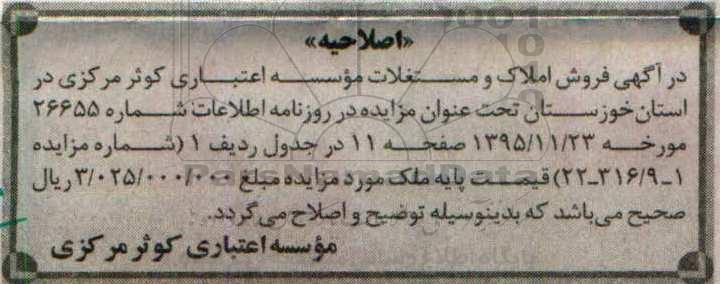 «اصلاحیه»
در آگهی فروش املاک و مستغلات مؤسسه اعتباری کوثر مرکزی در
استان خوزستان تحت عنوان مزایده در روزنامه اطلاعات شماره ۲۶۶۵۵
مورخه ۱۳۹۵/۱۱/۲۳ صفحه ۱۱ در جدول ردیف ۱ (شماره مزایده
۱-۳۱۶/۹-۲۲) قیمت پایه ملک مورد مزایده مبلغ ۳/۰۲۵/۰۰۰/۰۰۰ ریال
صحیح می‌باشد که بدینوسیله توضیح و اصلاح می‌گردد.
مؤسسه اعتباری کوثر مرکزی
ParsNamadData